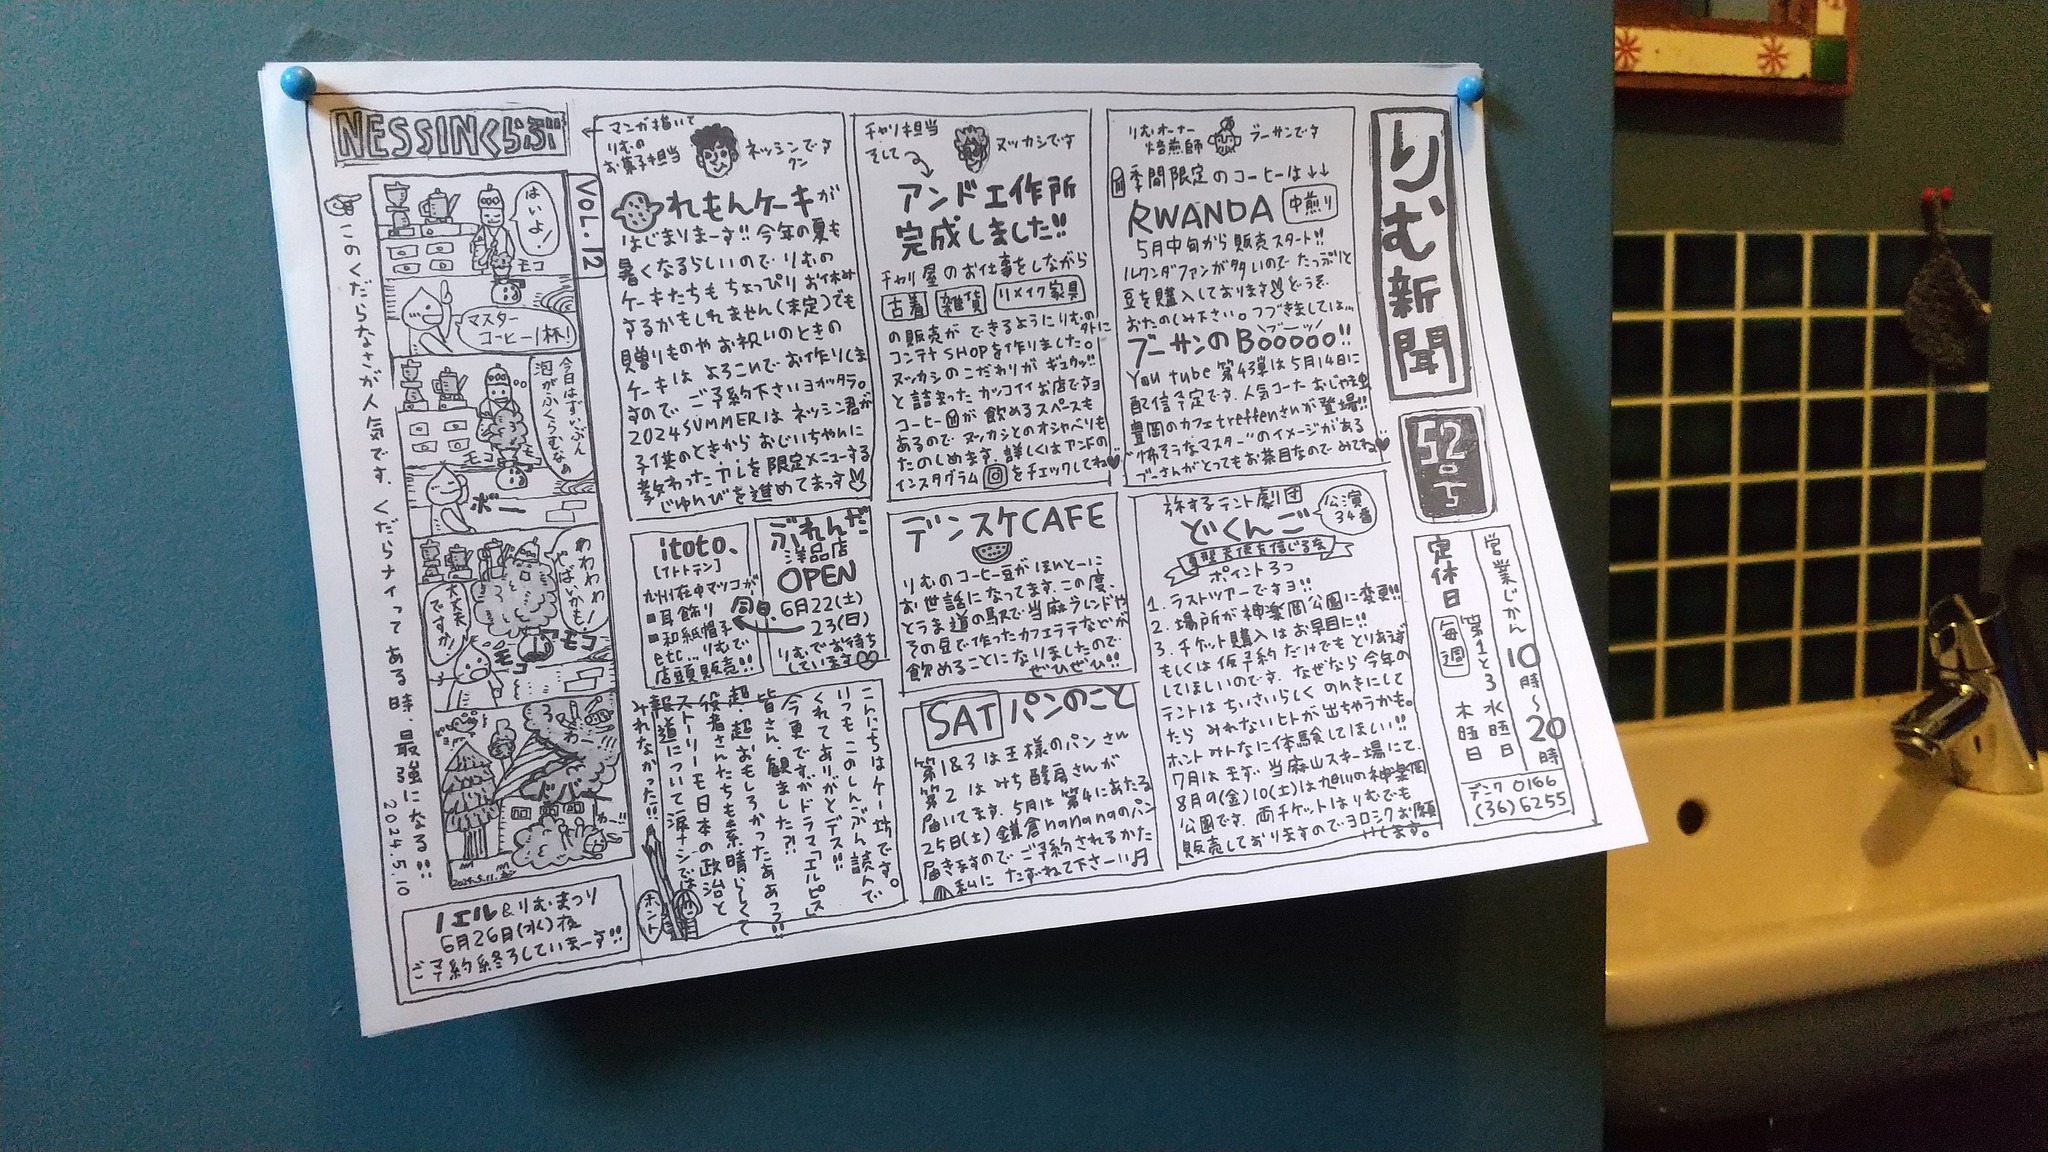 りむ新聞
52号
営業じかん 10時〜20時
定休日 毎週 水曜日
第1と3 木曜日
デンワ 0166
(36)6255
りむオーナー
焙煎師
ブーサンです
季間限定のコーヒーは↓↓
RWANDA 中煎り
5月中旬から販売スタート!!
ルワンダファンが多いので たっぷりと
豆を購入しております どうぞ
おたのしみ下さい。つづきましては…
ブーサンのBooooo!!
You tube 第43弾は5月14日に
配信予定です。人気コーナーおじゃま虫
豊岡のカフェtreffenさんが登場!!
"怖そうなマスター"のイメージがある
ブーさんがとってもお茶目なのでみてね♥
旅するテント劇団
どくんご 公演34番
ポイント3つ
1. ラストツアーですヨ!!
2. 場所が神楽岡公園に変更!!
3. チケット購入はお早目に!!
もしくは仮予約だけでもとりあえず
してほしいのです。なぜなら今年の
テントはちいさいらしく のんきにして
たら みれないヒトが出ちゃうかも。
ホントみんなに体験してほしい!!
7月はまず 当麻山スキー場にて、
8月9(金)10(土)は旭川の神楽岡
公園です。両チケットはりむでも
販売しておりますのでヨロシクお願
いします。
チャリ担当
そして
ヌッカシです
アンド工作所
完成しました!!
チャリ屋のお仕事をしながら
古着 雑貨 リメイク家具
の販売ができるようにりむの
外に
コンテナSHOPを作りました。
ヌッカシのこだわりがギュウッ!!
と詰まったカッコイイお店ですヨ
コーヒーが飲めるスペースも
あるので ヌッカシとのオシャベリも
たのしめます。詳しくはアンドの
インスタグラムをチェックしてね♥
デンスケCAFE
りむのコーヒー豆がほんとーに
お世話になってます。この度、
とうま道の駅で当麻グランドや
その豆で作ったカフェラテなどが
飲めることになりましたので
ぜひぜひ!!
SAT パンのこと
第1&3は王様のパンさん
第2はみち酵房さんが
届いてます。5月は第4にあたる
25日(土)鎌倉nananaのパン
届きますので ご予約されるかた
私に たずねて下さーい♫
←マンガ描いて
りむの
お菓子担当
ネッシンです
クン
れもんケーキが
はじまりまーす!! 今年の夏も
暑くなるらしいので りむの
ケーキたちも ちょっぴりお休み
するかもしれません(未定)でも
贈りものやお祝いのときの
ケーキは よろこんで お作りしま
すので、ご予約下さいヨかッタラ。
2024SUMMERは ネッシン君が
子供のときから おじいちゃんに
教わったカレーを限定メニューする
じゅんびを進めてまっす
ぶれんだ
洋品店
OPEN
6月22(土)
23(日)
りむでお待ち
しています♡
itoto、
[イトトテン]
九州在中マツコが
■耳飾り
■和紙帽子
etc… りむで
店頭販売!!
こんにちはケー坊です。
いつもこのしんぶん読んで
くれてありがとデス!!!
今更ですがドラマ「エルピス」
皆さん、観ました?!
超、超おもしろかったああっ!!
役者さんたちも素晴らしくて
ストーリーモ日本の政治と
報道について涙ナシでは
みれなかった!!
ホント
NESSINくらぶ
VOL.12
はいよ!
モコ
マスター
コーヒー1杯!
今日はずいぶん
泡がふくらむなぁ
モコ
モ
ボー
わわわわ!
やばいかも!
大丈夫
ですか!
モコ
モコ
ドバー
2024.5.11.
☞このくだらなさが人気です。くだらナイってある時、最強になる!!
2024.5.10
ノエル&りむまつり
6月26日(水)夜
ご予約終ろしていまーす!!